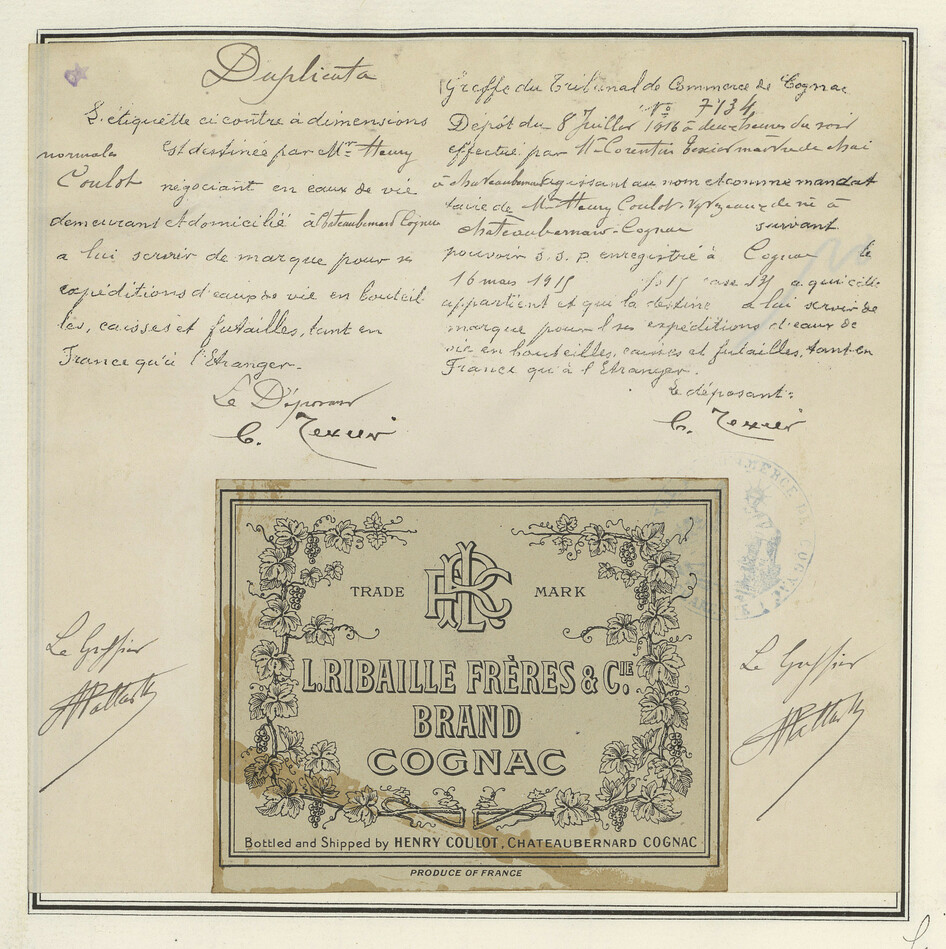 Duplicata
L'étiquette ci contre à dimensions
normales Est destinée par Mr Henry
Coulot négociant en eaux de vie
demeurant et domicilié à Chateaubernard Cognac
a lui servir de marque pour ses
expéditions d'eaux de vie en bouteil
les, caisses et futailles, tant en
France qu'à l'Etranger.
Le Déposant
C. Texier
Greffe du Tribunal de Commerce de Cognac
No 7134
Dépôt du 8 Juillet 1916 à deux heures du soir
effectué par Mr Corentin Texier maître de chai
à chateaubernard agissant au nom et comme mandat
taire de Mr Henry Coulot. Ngt en eaux de vie à
chateaubernard-Cognac suivant
pouvoir s.s.p. enregistré à Cognac le
16 mars 1915 case 131 a qui elle
appartient et que la destine a lui servir de
marque pour ses expéditions d'eaux de
vie en bouteilles, caisses et futailles, tant en
France qu'à l'Etranger.
Le déposant:
C. Texier
TRADE MARK
L. RIBAILLE FRÈRES & CIE.
BRAND
COGNAC
Bottled and Shipped by HENRY COULOT, CHATEAUBERNARD COGNAC
PRODUCE OF FRANCE
Le Greffier
Le Greffier
COMMERCE DE COGNAC